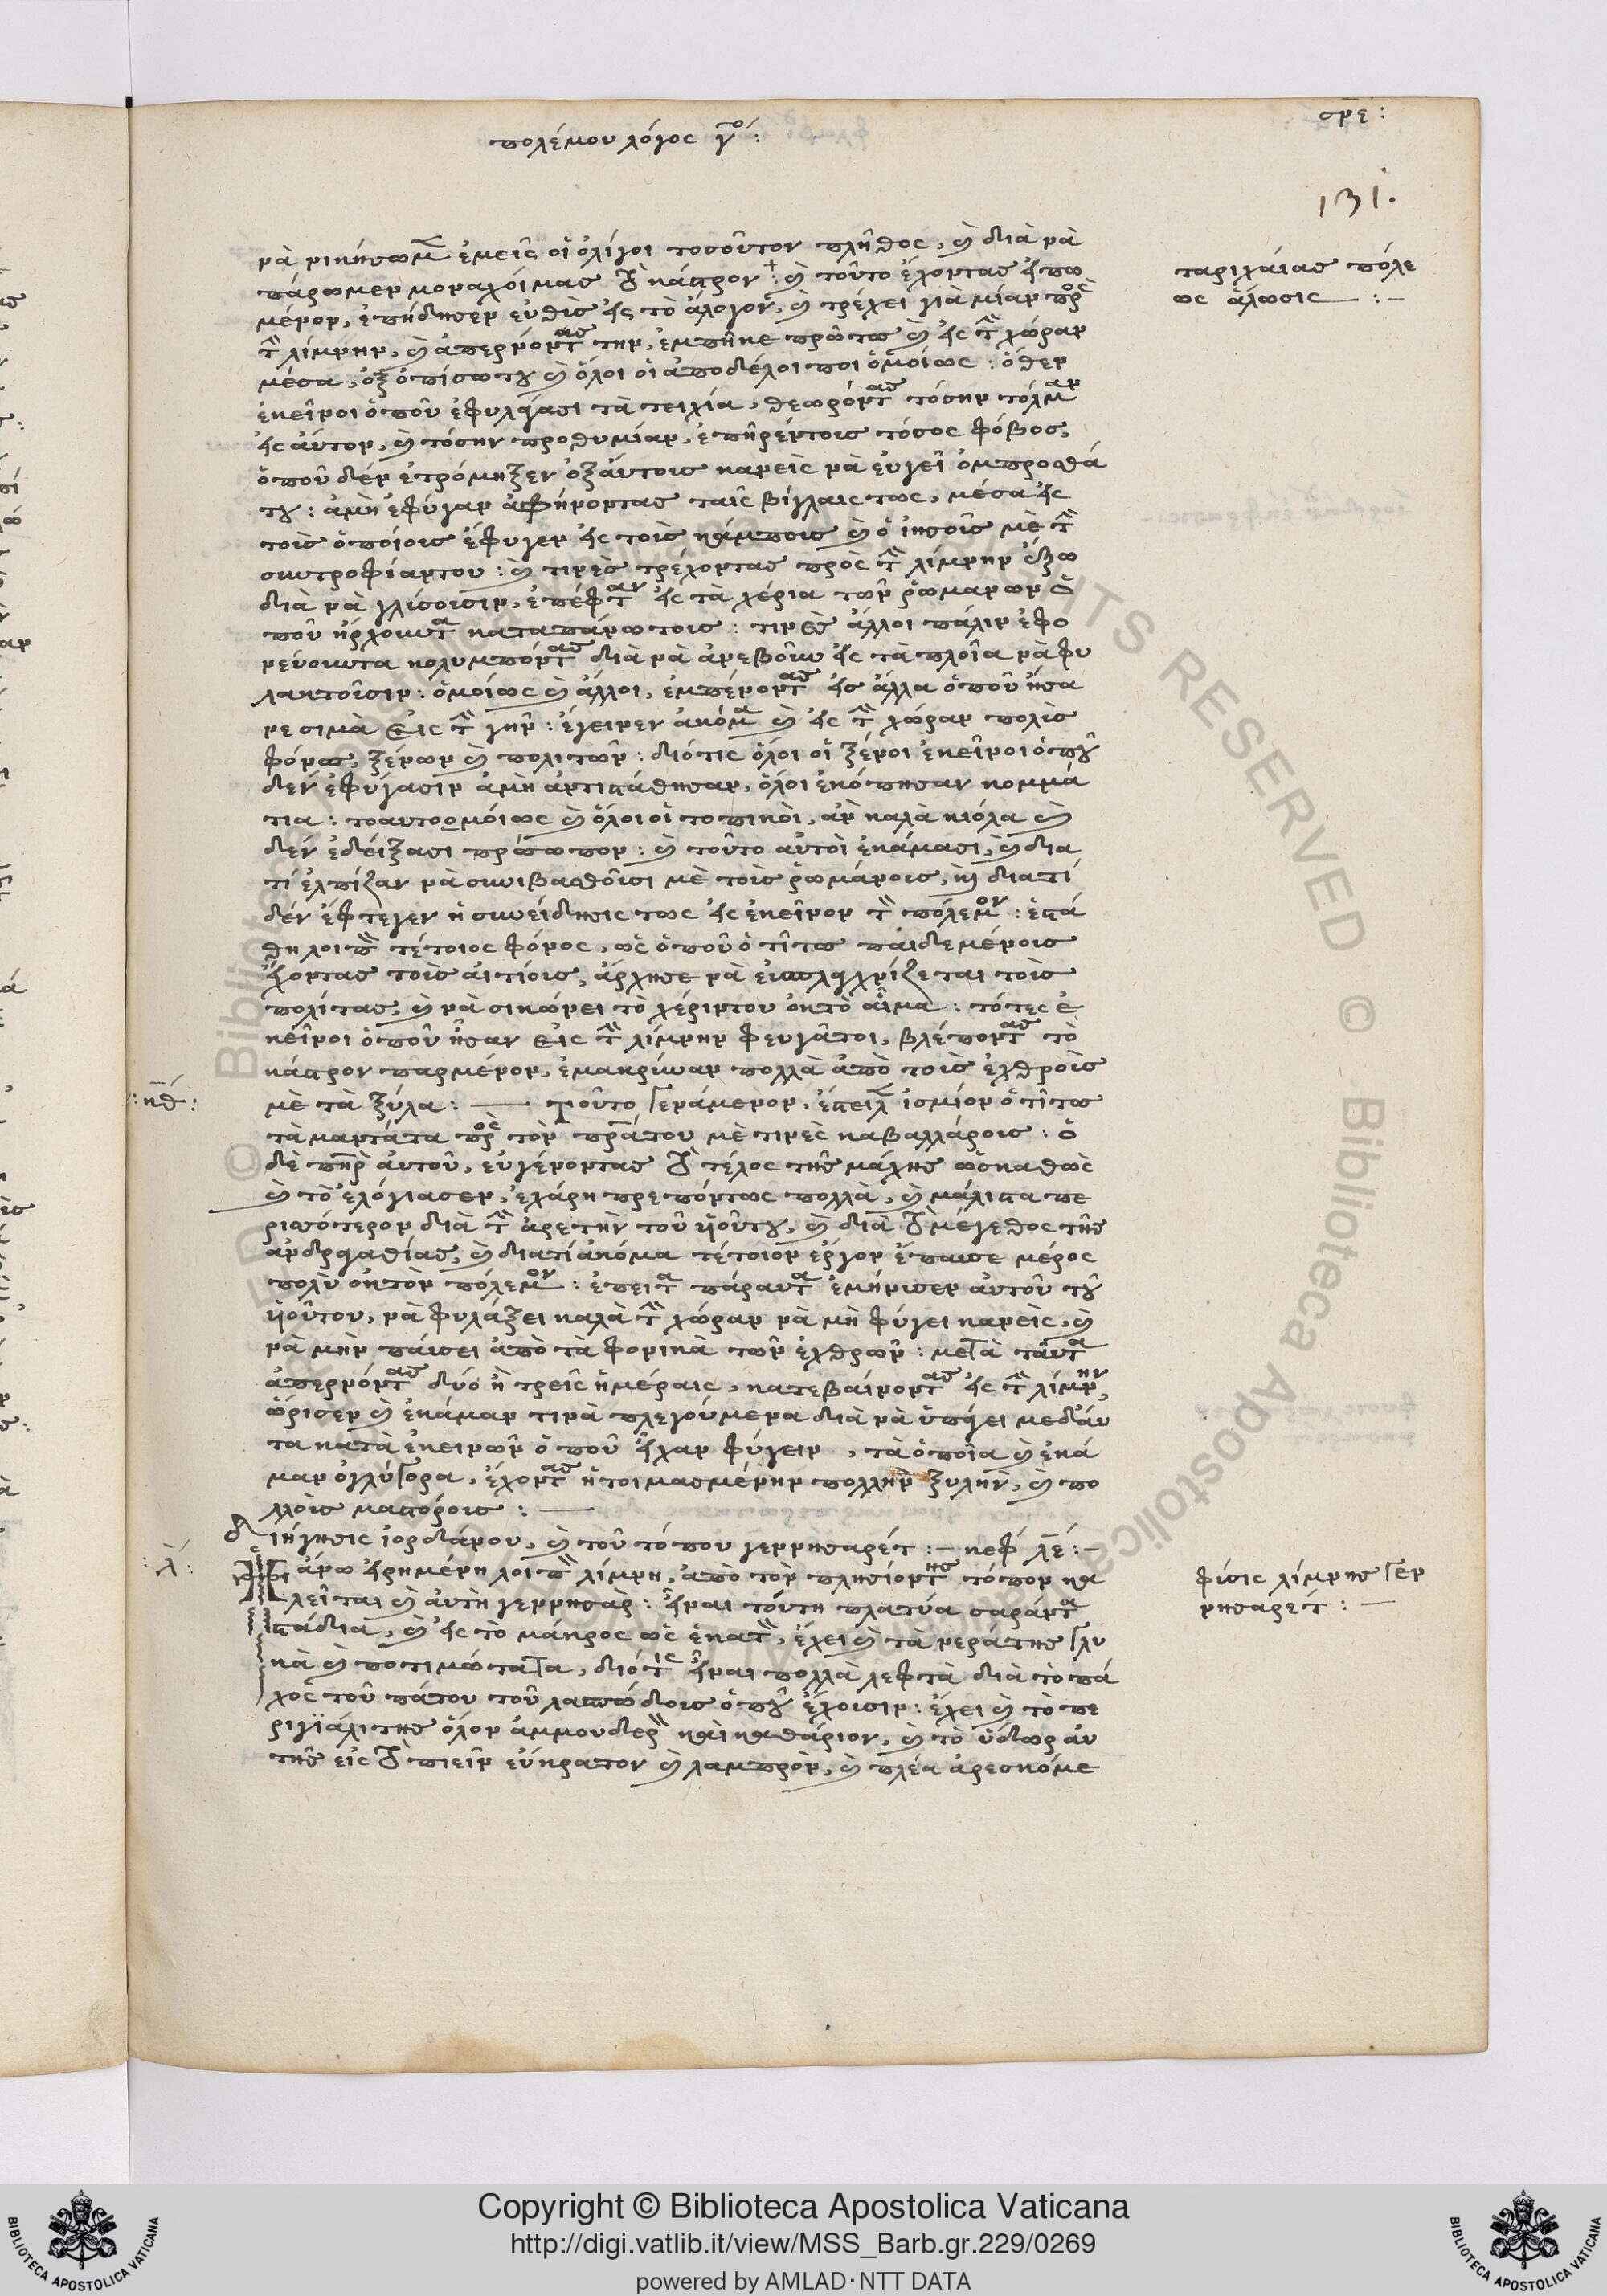 σνε:
πολέμου λόγος γος:
131.
νὰ νικήσωμεν ἐμεῖς οἱ ὀλίγοι τοσοῦτον πλῆθος, καὶ διὰ νὰ
πάρωμεν μοναχοί μας τὸ κάστρον: καὶ τοῦτο ἔχοντας εἰπω
μένον, ἐπήδησεν εὐθὺς εἰς τὸ ἄλογον, καὶ τρέχει γιὰ μίαν πρὸς
τὴν λίμνην, καὶ ἀπερνόντας την, ἐμπῆκε πρῶτος καὶ εἰς τὴν χώραν
μέσα, ὀξοπίσω του καὶ ὅλοι οἱ ἀποδέλοιποι ὁμοίως: ὅθεν
ἐκεῖνοι ὁποῦ ἐφυλάγασι τὰ τειχία, θεωρόντας τόσην τόλμαν
εἰς αὐτον, καὶ τόσην προθυμίαν, ἐπῆρέντοις τόσος φόβος,
ὁποῦ δὲν ἐτρόμηξεν ὀξαύτοις κανεὶς νὰ εὐγεῖ ὀμπροσθά
του: ἀμὴ ἐφύγαν ἀφήνοντας ταῖς βίγλαις τως, μέσα εἰς
τοὶς ὁποίοις ἔφυγεν εἰς τοὶς κάμποις καὶ ὁ ἰησοῦς μὲ τὴν
συντροφίαντου: καὶ τινὲς τρέχοντας πρὸς τὴν λίμνην ἔξω
διὰ νὰ γλίσοισιν, ἐπέφταν εἰς τὰ χέρια τῶν ῥωμανων ὁ
ποῦ ἠρχουντα καταπάνωτοις: τινὲς ἄλλοι πάλιν ἐφο
νεύοιντα κολυμπόντας διὰ νὰ ἀνεβοῦν εἰς τὰ πλοῖα νὰ φυ
λακτοῦσιν: ὁμοίως καὶ ἄλλοι, ἐμπένοντας εἰς ἄλλα ὁποῦ ἦσα
νε σιμὰ εἰς τὴν γῆν: ἔγεινεν ἀκόμα καὶ εἰς τὴν χώραν πολὺς
φόνος, ξένων καὶ πολιτῶν: διότις ὅλοι οἱ ξένοι ἐκεῖνοι ὁποῦ
δὲν ἐφύγασιν ἀμὴ ἀντιστάθησαν, ὅλοι ἐκόπησαν κομμά
τια: τοαυτοομοίως καὶ ὅλοι οἱ τοπικοὶ, ἂν καλὰ κιόλα καὶ
δὲν ἐδείξασι πρόσωπον: καὶ τοῦτο αὐτοὶ ἐκάμασι, καὶ δια
τί ἐλπίζαν νὰ συνιβασθοῦσι μὲ τοὶς ῥωμάνοις, καὶ διατί
δὲν ἔφτεγεν ἡ συνείδησις τως εἰς ἐκεῖνον τὸν πόλεμον: ἐστά
θη λοιπὸν τέτοιος φόνος, ὡς ὁποῦ ὁ τίτος παιδεμένοις
ἔχοντας τοὶς αἰτίοις, ἄρχησε νὰ εὐσπλαχνίζεται τοὶς
πολίτας, καὶ νὰ σικώνει τὸ χέριντου ὀκτὸ αἷμα: τότες ἐ
κεῖνοι ὁποῦ ἦσαν εἰς τὴν λίμνην φευγάτοι, βλέποντας τὸ
κάστρον παρμένον, ἐμακρύναν πολλὰ ἀπὸ τοὶς ἐχθροὶς
μὲ τὰ ξύλα: — τοῦτο γενάμενον, ἔστειλεν ισμίον ὁ τίτος
τὰ μαντάτα πρὸς τὸν πρᾶτου μὲ τινὲς καβαλλάροις: ὁ
δὲ πατὴρ αὐτοῦ, εὐγένοντας τὸ τέλος τῆς μάχης ὡσκαθὼς
καὶ τὸ ἐλόγιασεν, ἐχάρη πρεπόντως πολλὰ, καὶ μάλιστα πε
ρισσότερον διὰ τὴν ἀρετὴν τοῦ υἱοῦτου, καὶ διὰ τὸ μέγεθος τῆς
ἀνδραγαθίας, καὶ διατί ἀκόμα τέτοιον ἔργον ἔπαυσε μέρος
πολὺ ὀκτὸν πόλεμον: ἔπειτα πάραυτα ἐμήνυσεν αὐτοῦ τοῦ
υἱοῦτου, νὰ φυλάξει καλὰ τὴν χώραν νὰ μὴ φύγει κανεὶς, καὶ
νὰ μὴν παύσει ἀπὸ τὰ φονικὰ τῶν ἐχθρῶν: μετὰ ταῦτα
ἀπερνόντας δύο ἢ τρεῖς ἡμέραις, κατεβαίνοντας εἰς τὴν λίμνην,
ὥρισεν καὶ ἐκάμαν τινὰ πλεγούμενα διὰ νὰ ὑπάγει μεδαύ
τα κατὰ ἐκεινῶν ὁποῦ εἶχαν φύγειν, τὰ ὁποῖα καὶ ἐκά
μαν ὀγλύγορα, ἔχοντας ἡτοιμασμένην πολλὴν ξυλὴν, καὶ πο
λλοὶς μαστόροις: —
Διήγησις ἰορδάνου, καὶ τοῦ τόπου γεννησαρέτ:– κεφ λε:–
ἄνω εἰρημένη λοιπὸν λίμνη, ἀπὸ τὸν πλησίοντης τόπον κα
λεῖται καὶ αὐτὴ γεννησάρ: εἶναι τούτη πλατύα σαράντα
στάδια, καὶ εἰς τὸ μάκρος ὡς ἑκατὸν, ἔχει καὶ τὰ νερά της γλυ
κὰ καὶ ποτιμώτατα, διότις εἶναι πολλὰ λεφτὰ διὰ τὸ πά
χος τοῦ πάτου τοῦ λασπώδοις ὁποῦ ἔχοισιν: ἔχει καὶ τὸ πε
ριγϊάλι της ὅλον ἀμμουδερὸν καὶ καθάριον, καὶ τὸ ὕδωρ αὐ
τῆς εἰς τὸ πιεῖν εὔκρατον καὶ λαμπρὸν, καὶ πλέα ἀρεσκόμε
ταριχαίας πόλε
ως ἅλωσις — :–
:κθ:
:λ:
φύσις λίμνης γεν
νησαρέτ: —
Copyright © Biblioteca Apostolica Vaticana
http://digi.vatlib.it/view/MSS_Barb.gr.229/0269
powered by AMLAD·NTT DATA
BIBLIOTECA APOSTOLICA VATICANA
BIBLIOTECA APOSTOLICA VATICANA